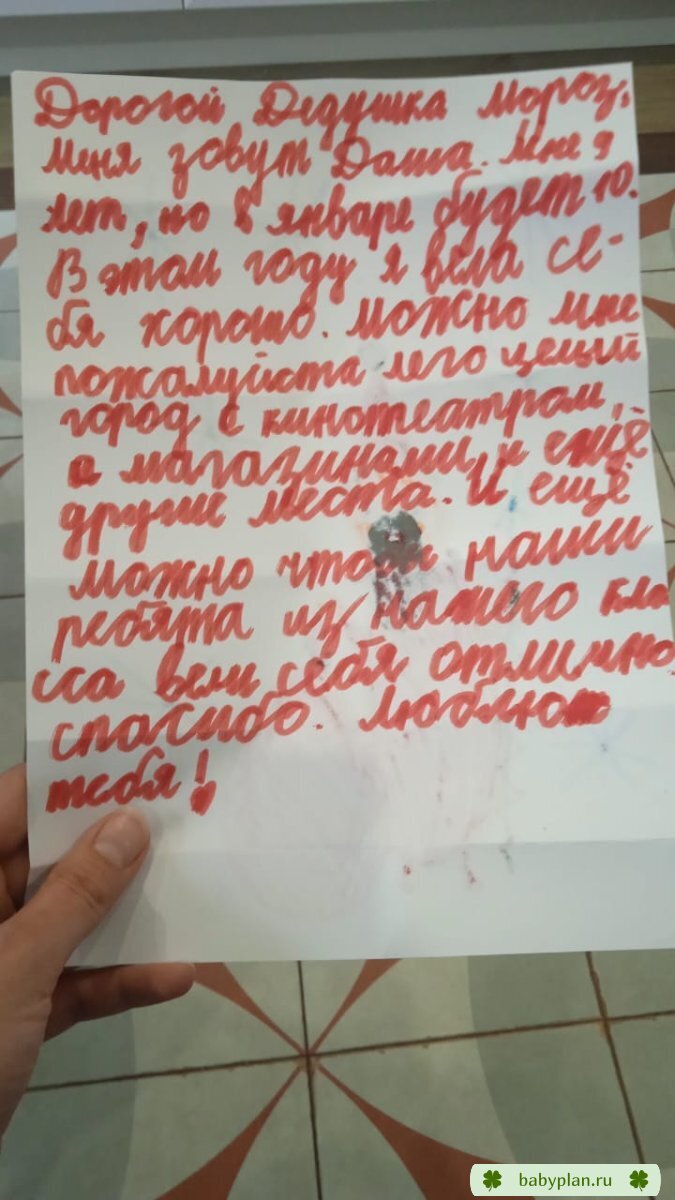 Дорогой Дедушка Мороз,
меня зовут Даша. Мне 9
лет, но в январе будет 10.
В этом году я вела се-
бя хорошо. можно мне
пожалуйста лего целый
город с кинотеатром,
а магазинами, и ещё
другие места. И ещё
можно чтобы наши
ребята из нашего кла
сса вели себя отлично,
спасибо. люблю
тебя!
babyplan.ru